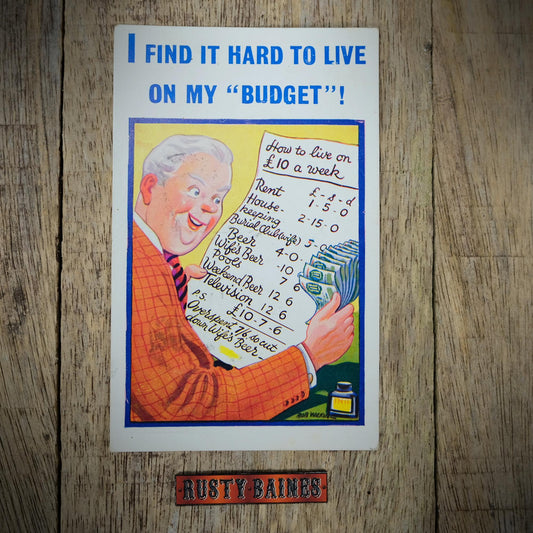 I FIND IT HARD TO LIVE
ON MY “BUDGET”!
How to live on
£10 a week
£ - s - d
Rent 1 - 5 - 0
House-
keeping 2-15-0
Burial Club (wife) 5-0
Beer 4-0-
Wife's Beer -10
Pools 7 6
Weekend Beer 12 6
Television 12 6
£10-7-6
P.S.
Overspent 7/6 so cut
down Wife's Beer-
RUSTY·BAINES